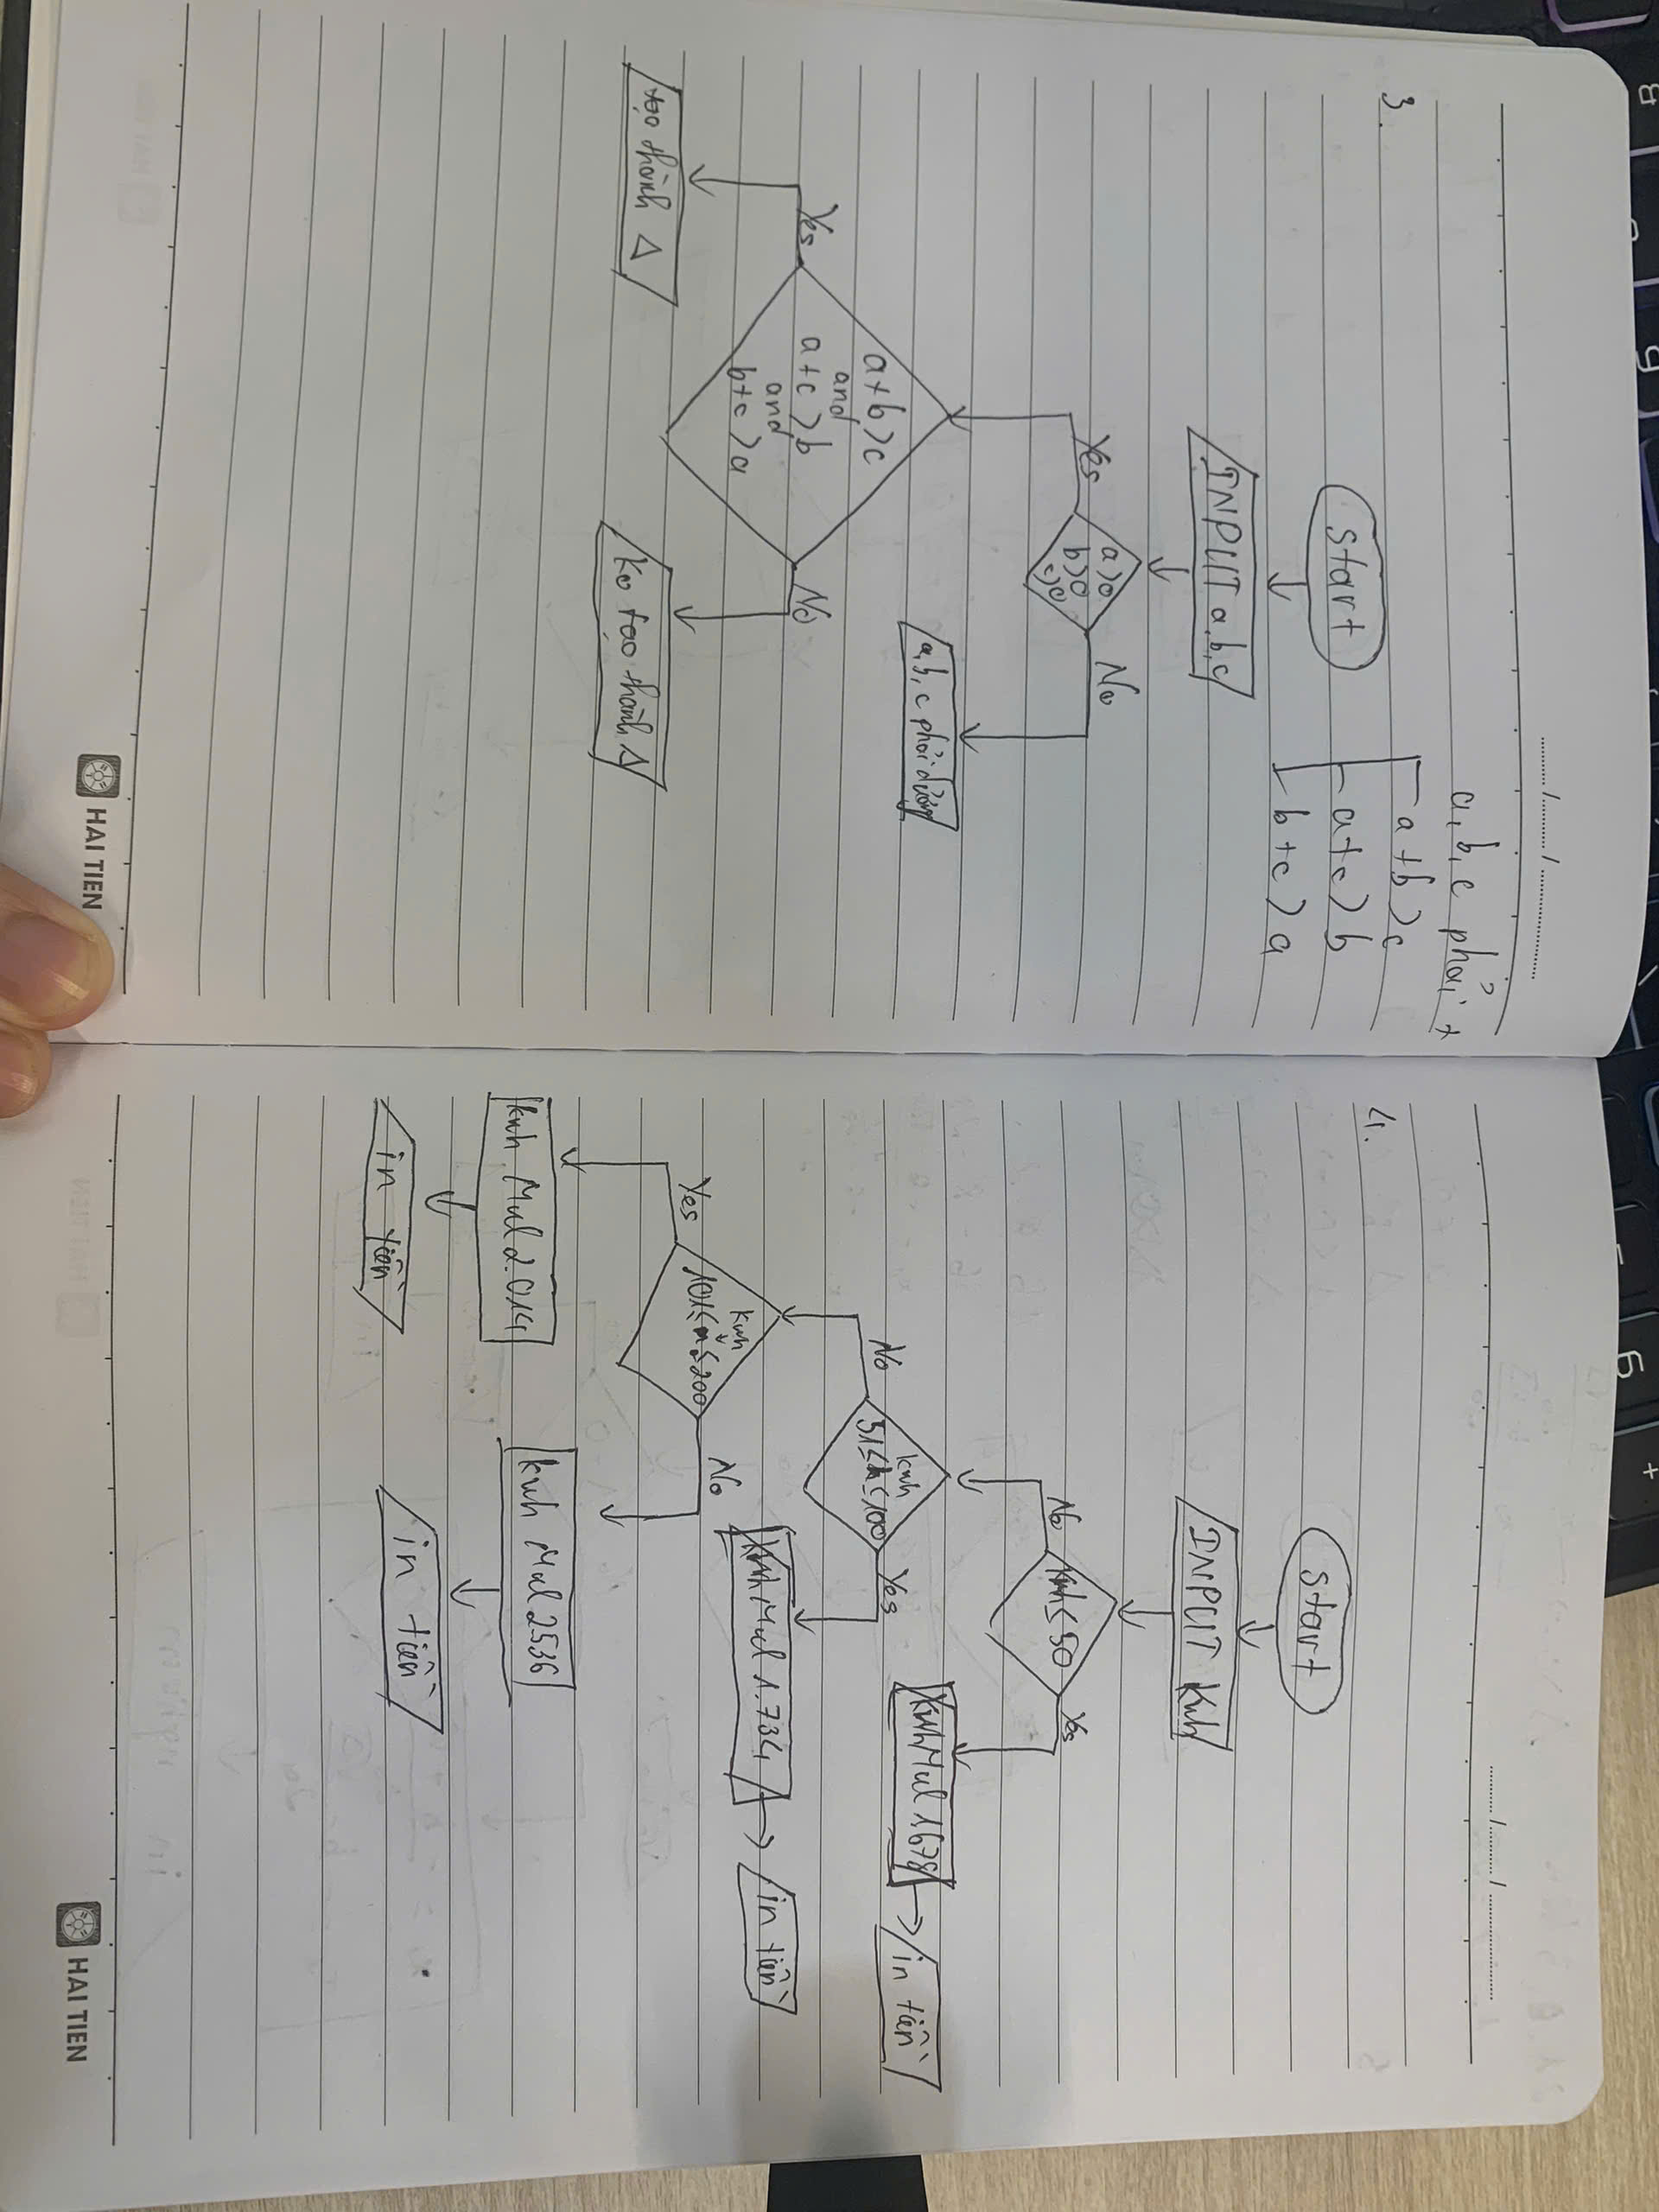 3.
a, b, c phải +
a + b > c
a + c > b
b + c > a
Start
INPUT a, b, c
a > 0
b > 0
c > 0
Yes
No
a, b, c phải dương
a + b > c
and
a + c > b
and
b + c > a
Yes
No
tạo thành Δ
ko tạo thành Δ
HAI TIEN
4.
Start
INPUT Kwh
Kwh ≤ 50
No
Yes
Kwh Mul 1.678
in tiền
kwh
51 ≤ ≤ 100
No
Yes
Kwh Mul 1.734
in tiền
kwh
101 ≤ ≤ 200
Yes
No
kwh Mul 2.014
in tiền
kwh Mul 2536
in tiền
HAI TIEN